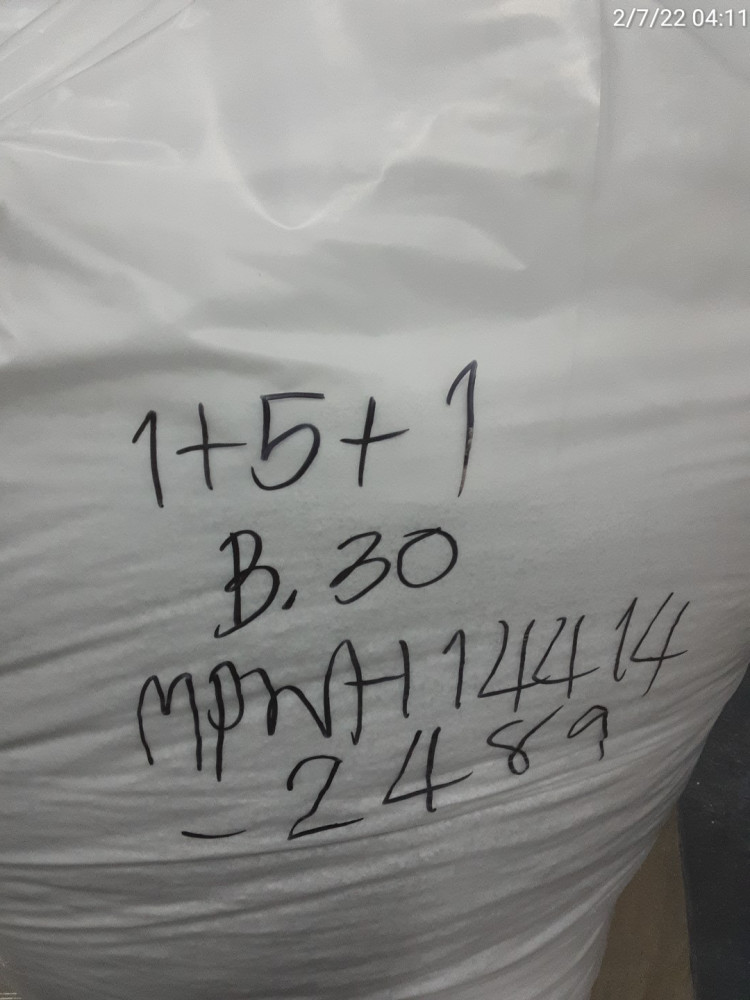 2/7/22 04:11
1+5+1
B. 30
MPWH 14414
- 2489